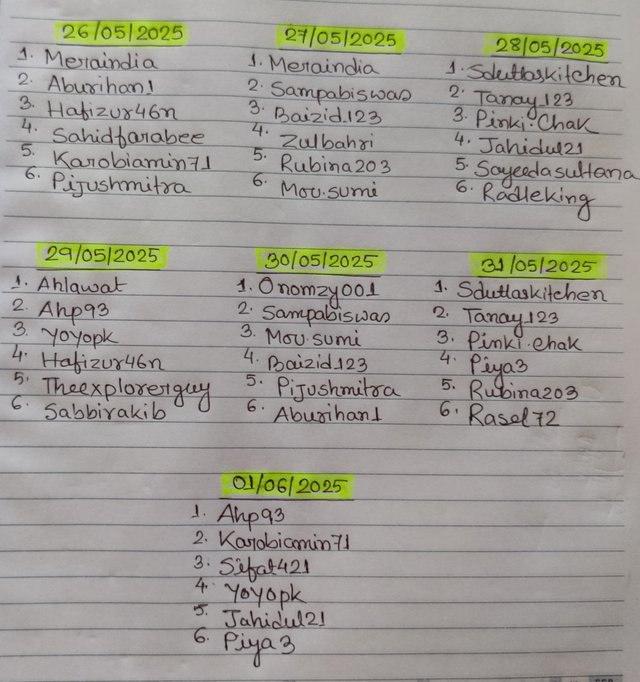 26/05/2025
1. Meraindia
2. Aburihan1
3. Hafizur46n
4. Sahidfarabee
5. Karobiamin71
6. Pijushmitra
27/05/2025
1. Meraindia
2. Sampabiswas
3. Baizid123
4. Zulbahri
5. Rubina203
6. Mou.sumi
28/05/2025
1. Sduttaskitchen
2. Tanay123
3. Pinki.Chak
4. Jahidul21
5. Sayeedasultana
6. Radleking
29/05/2025
1. Ahlawat
2. Ahp93
3. Yoyopk
4. Hafizur46n
5. Theexplorerguy
6. Sabbirakib
30/05/2025
1. Onomzy001
2. Sampabiswas
3. Mou.sumi
4. Baizid123
5. Pijushmitra
6. Aburihan1
31/05/2025
1. Sduttaskitchen
2. Tanay123
3. Pinki.chak
4. Piya3
5. Rubina203
6. Rasel72
01/06/2025
1. Ahp93
2. Karobiamin71
3. Sifat421
4. Yoyopk
5. Jahidul21
6. Piya3